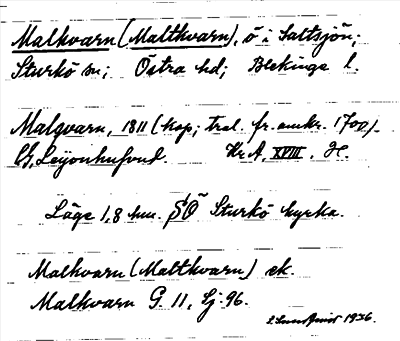 Malkvarn (Maltkvarn), ö i Saltsjön;
Sturkö sn; Östra hd; Blekinge l.
Malqvarn, 1811 (kop; trol. fr. omkr. 1700).
G. Leijonhufvud. Kr A. XVIII. H.
Läge 1,8 km. SÖ Sturkö kyrka.
Malkvarn (Maltkvarn) ek.
Malkvarn G. 11, Sj. 96.
1936.